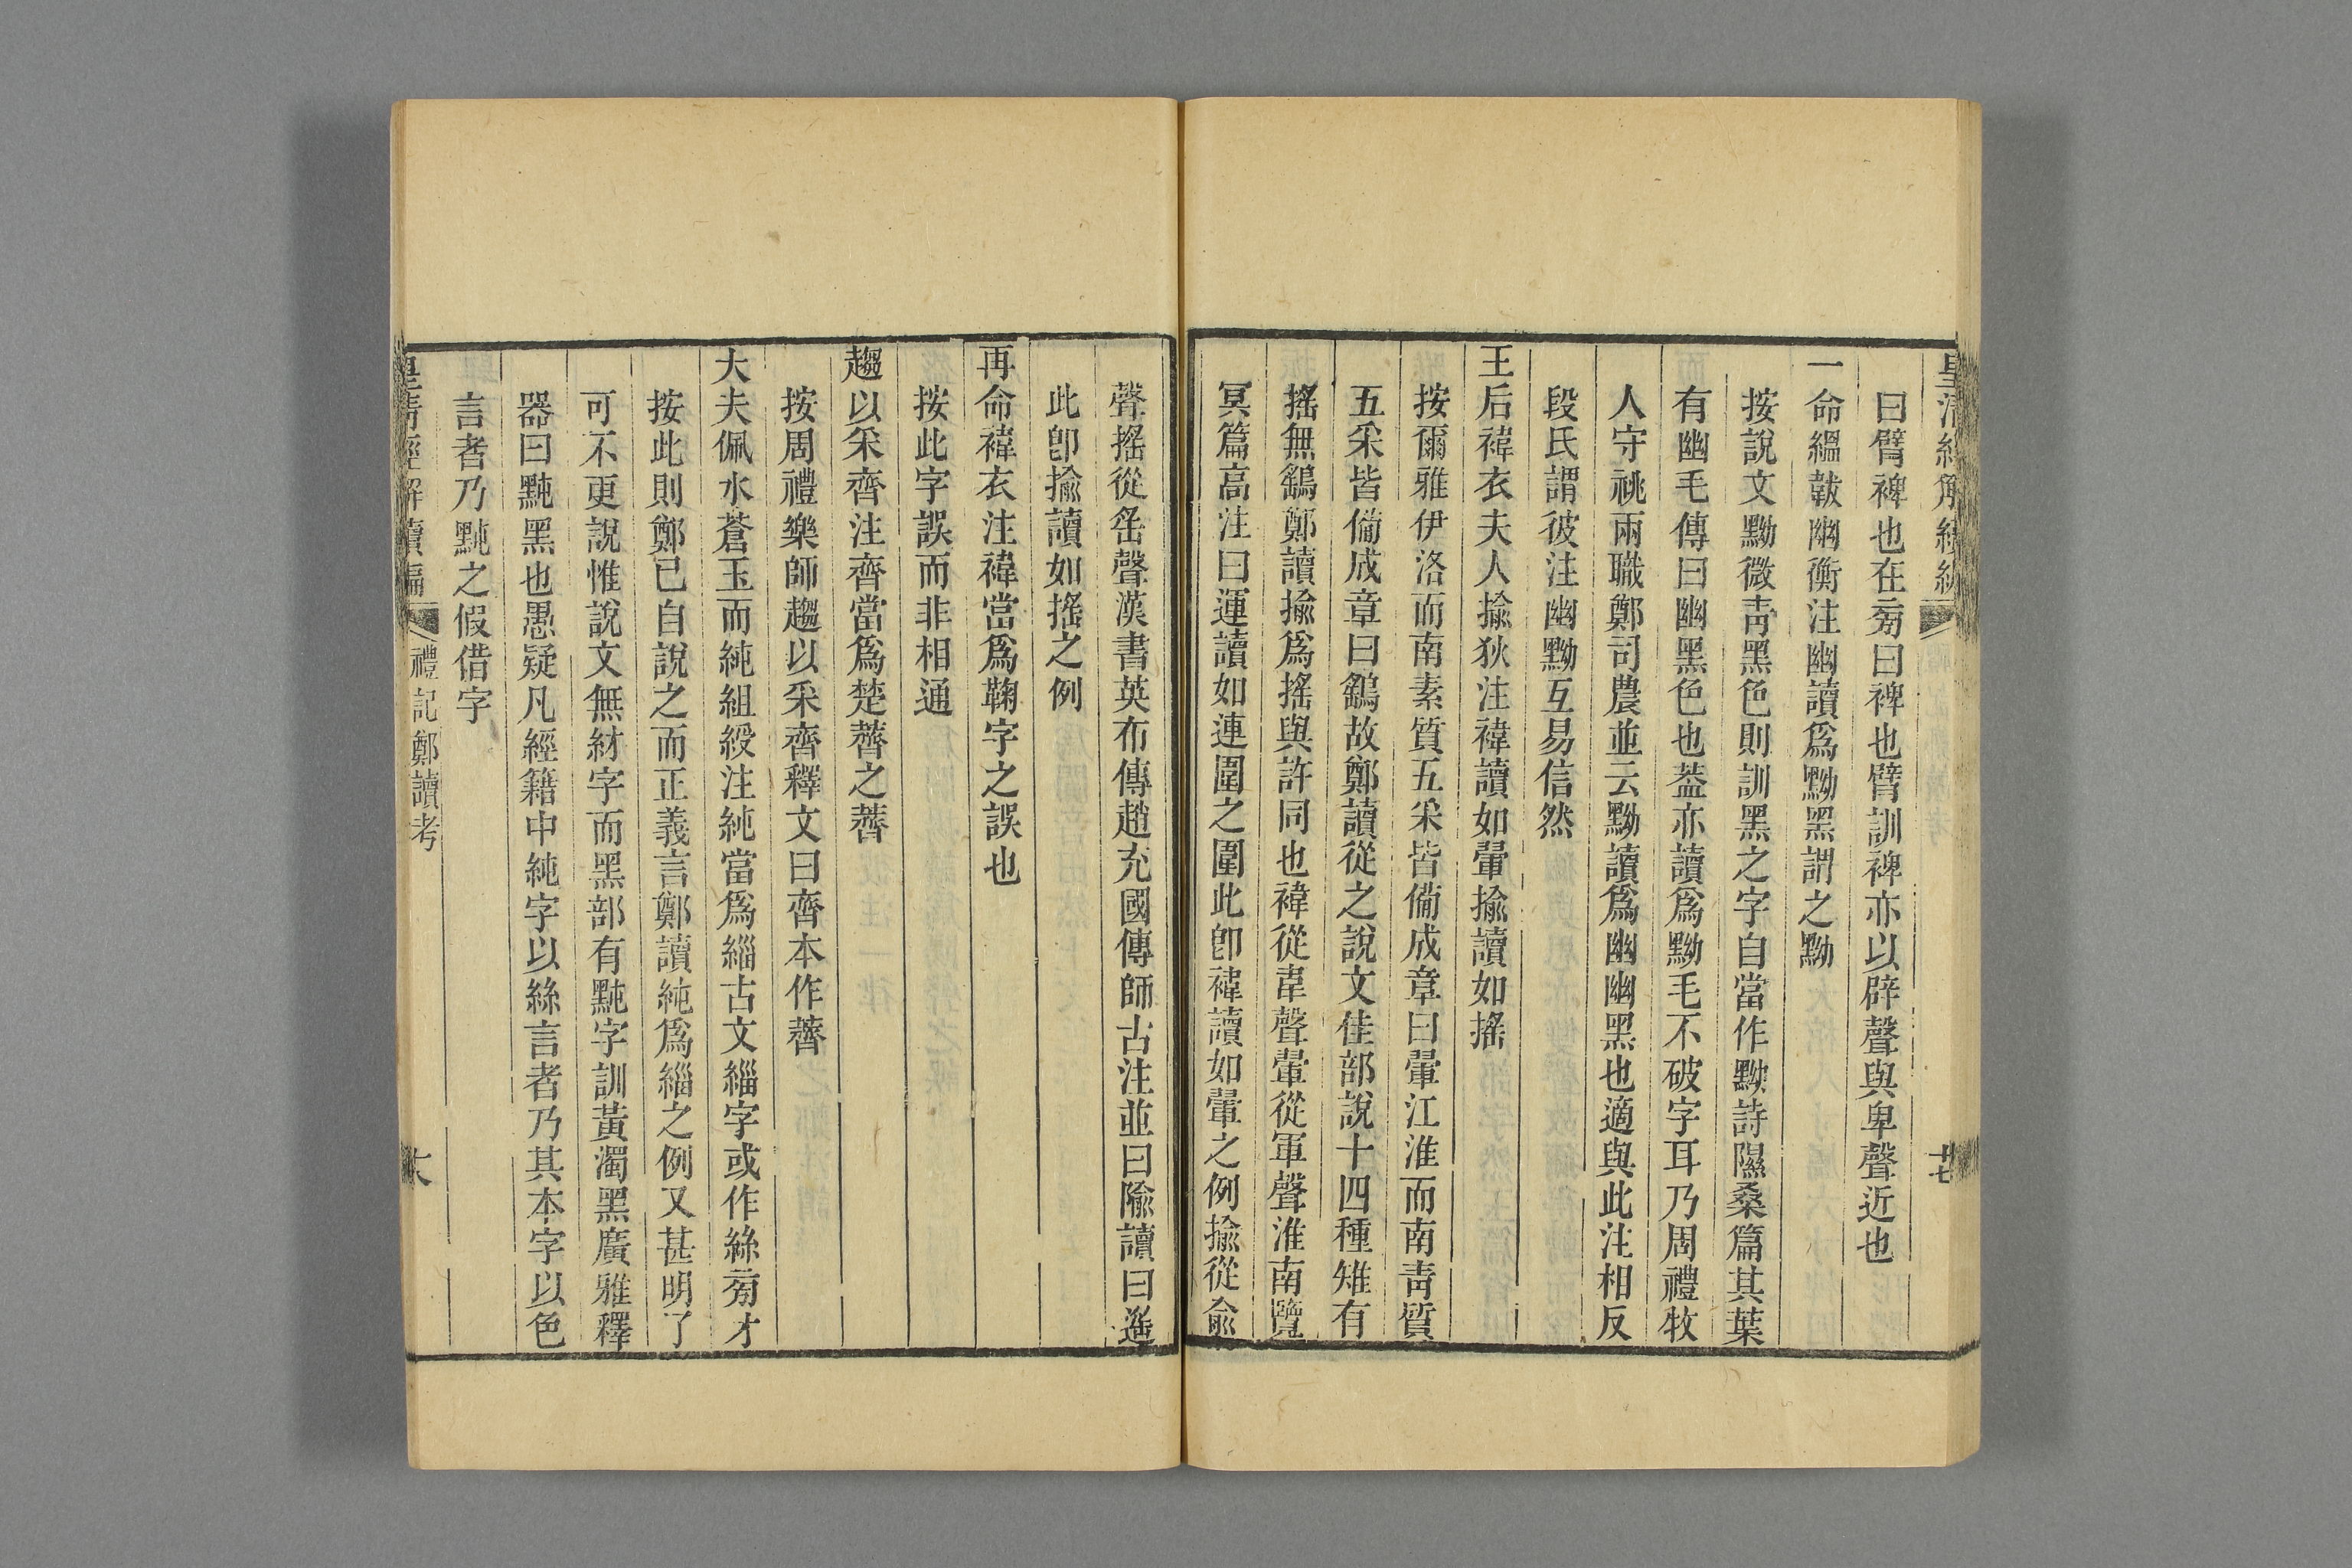 皇清經解續編
十七
曰臂裨也在旁曰裨也臂訓裨亦以辟聲與卑聲近也
一命縕韍幽衡注幽讀爲黝黑謂之黝
按說文黝微靑黑色則訓黑之字自當作黝詩隰桑篇其葉
有幽毛傳曰幽黑色也葢亦讀爲黝毛不破字耳乃周禮牧
人守祧兩職鄭司農並云黝讀爲幽幽黑也適與此注相反
段氏謂彼注幽黝互易信然
王后褘衣夫人揄狄注褘讀如翬揄讀如搖
按爾雅伊洛而南素質五采皆備成章曰翬江淮而南靑質
五采皆備成章曰鷂故鄭讀從之說文隹部說十四種雉有
搖無鷂鄭讀揄爲搖與許同也褘從韋聲翬從軍聲淮南覽
冥篇高注曰運讀如連圍之圍此卽褘讀如翬之例揄從兪
聲搖從䍃聲漢書英布傳趙充國傳師古注並曰隃讀曰遙
此卽揄讀如搖之例
再命褘衣注褘當爲鞠字之誤也
按此字誤而非相通
趨以采齊注齊當爲楚薺之薺
按周禮樂師趨以采齊釋文曰齊本作薺
大夫佩水蒼玉而純組綬注純當爲緇古文緇字或作絲旁才
按此則鄭已自說之而正義言鄭讀純爲緇之例又甚明了
可不更說惟說文無紂字而黑部有黗字訓黃濁黑廣雅釋
器曰黗黑也愚疑凡經籍中純字以絲言者乃其本字以色
言者乃黗之假借字
皇淸經解讀編
禮記鄭讀考
大